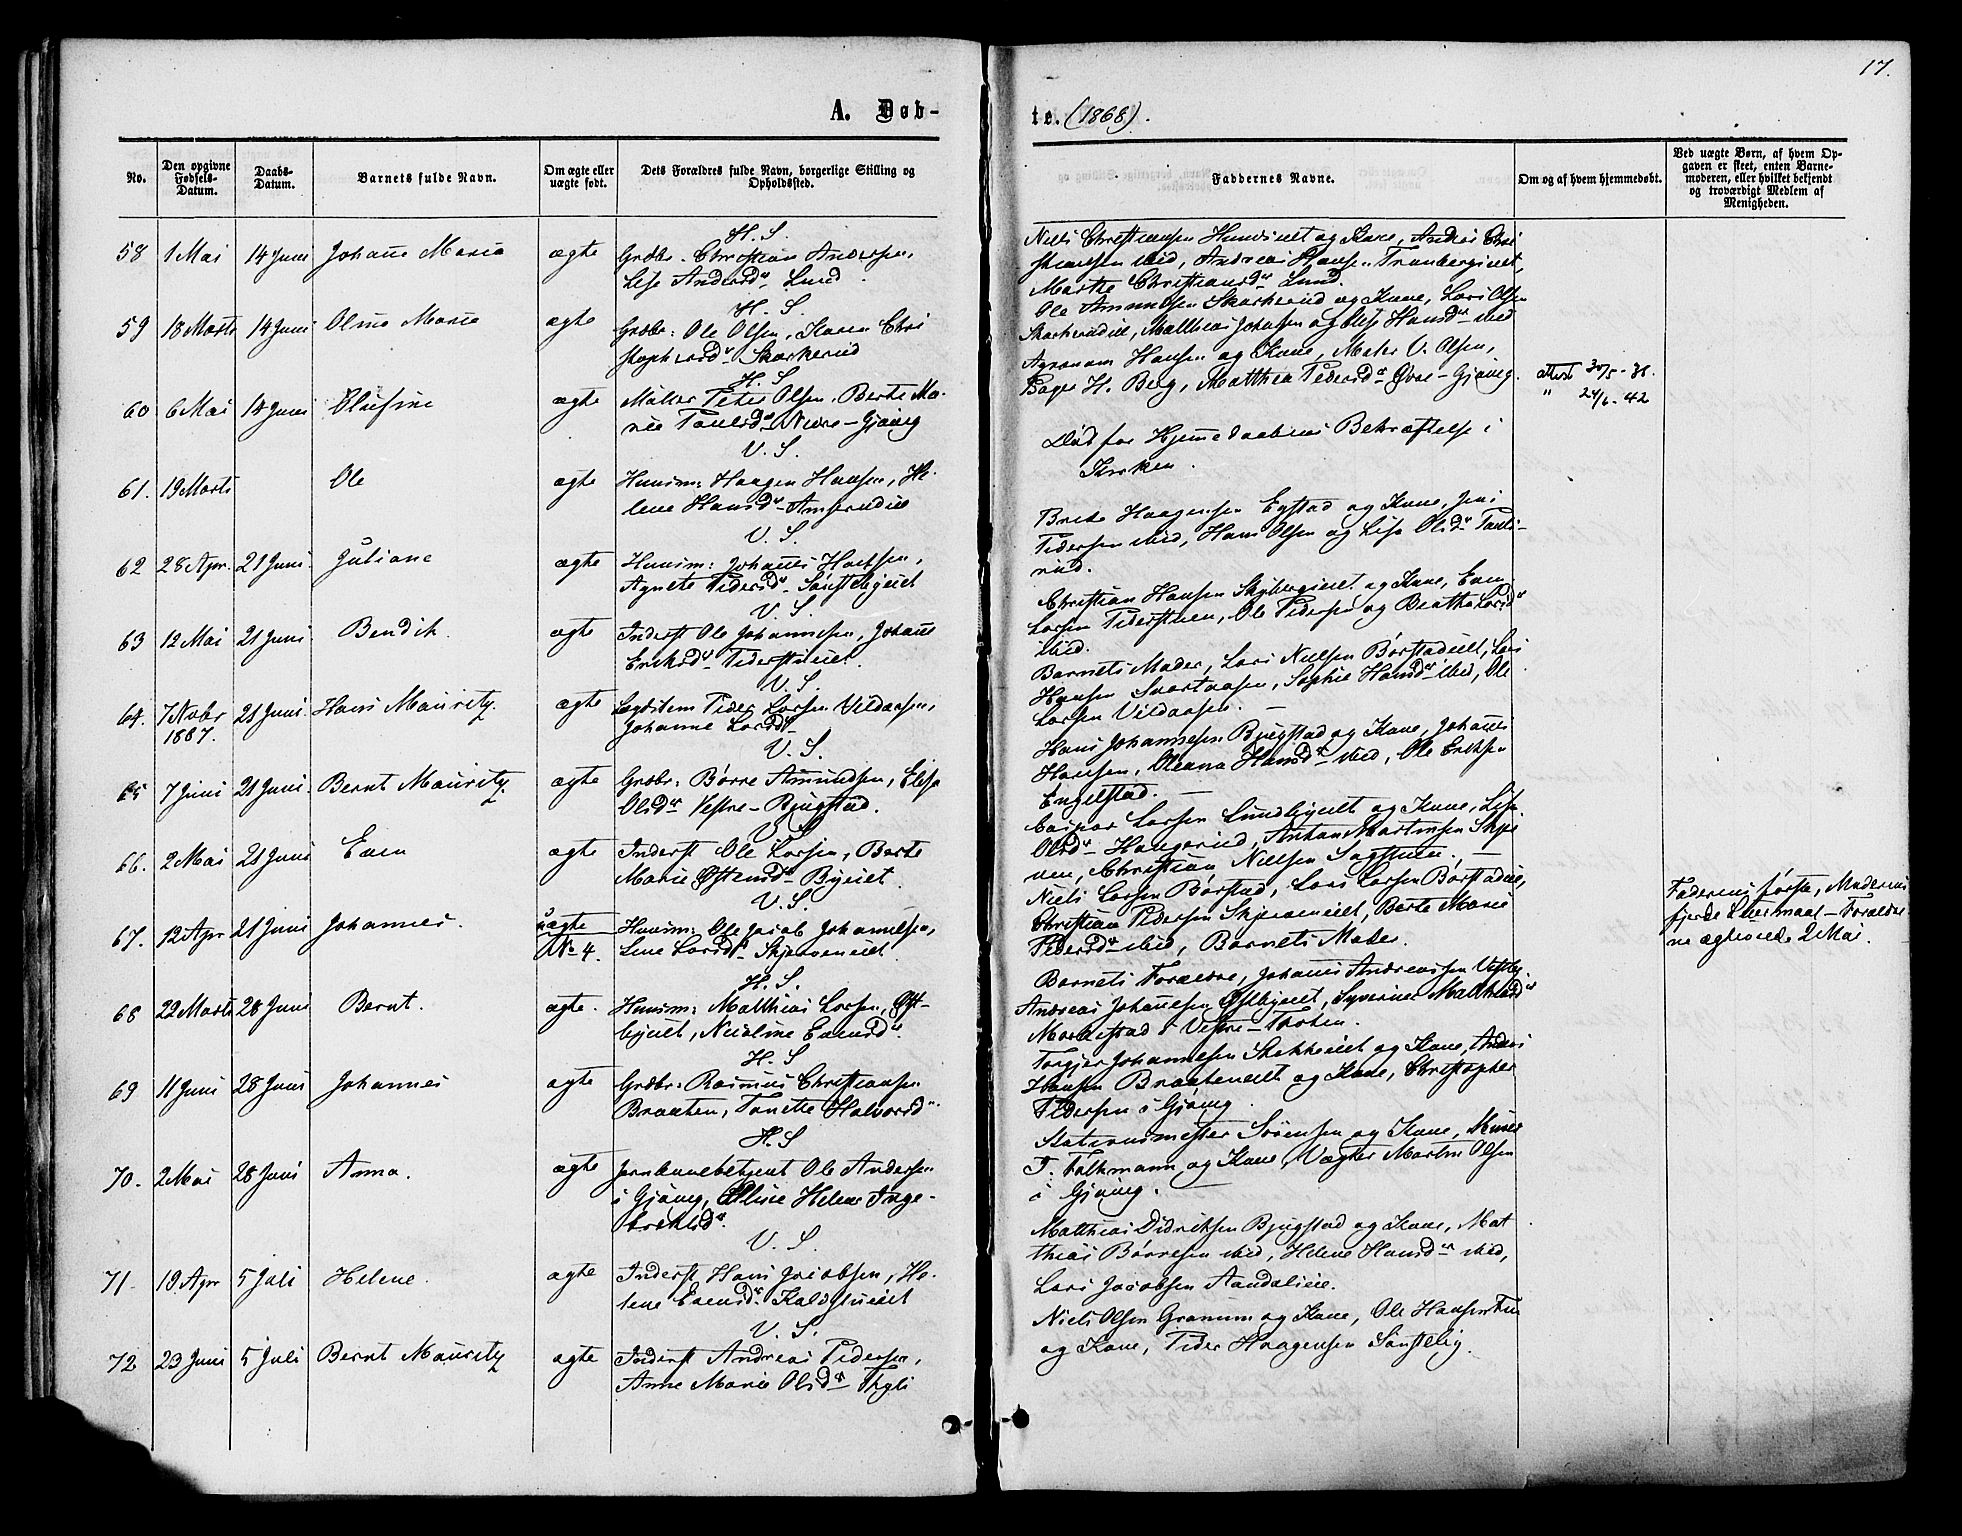 17.
A. Døb-
te. (1868).
No.
Den opgivne Fødsels-Datum.
Daabs-Datum.
Barnets fulde Navn.
Om ægte eller uægte født.
Dets Forældres fulde Navn, borgerlige Stilling og Opholdssted.
Faddernes Navne.
Om og af hvem hjemmedøbt.
Ved uægte Børn, af hvem Opgaven er skeet, enten Barnemoderen, eller hvilket bekjendt og troværdigt Medlem af Menigheden.
H. S.
58 1 Mai 14 Juni Johanne Marie ægte Grdbr. Christian Andersen,
Lise Andersdr Lund.
Niels Christiansen Hundsiuet og Kone, Anders Chri
stiansen ibid, Andreas Hansen Tranbergiuet,
Marthe Christiansdr Lund.
H. S.
59 18 Marts 14 Juni Oline Marie ægte Grdbr: Ole Olsen, Karen Chri
stophersdr Skarkerud
Ole Amundsen Skarkerud og Kone, Lars Olsen
Matthias Johnsen og Else Hansdr ibid
H. S
60 6 Mai 14 Juni Olufine ægte Møller Peter Olsen, Berte Ma-
rie Paulsdr Nedre-Gjøvig
Agronom Hansen og Kone, Maler V. Olsen,
Bager H. Berg, Matthea Pedersdr Øvre-Gjøvig.
Attest 30/5-38.
" 24/6-42
V. S.
61. 19 Marts Ole ægte Huusm: Haagen Hansen, He-
lene Hansdr
Død før Hjemmedaabens Bekræftelse i
Kirken.
V. S.
62 28 Apr. 21 Juni Juliane ægte Huusm: Johannes
Agnete Pedersdr
Haagensen Egstad og Kone, Jens
Pedersen ibid, Hans Olsen og Lise Olsdr Pauls-
rud.
V. S
63 12 Mai 21 Juni Bendik. ægte Inderst Ole Johannesen, Johanne
Eriksdr
Christian Hansen Skybergeiet og Kone, Even
Larsen Pederstuen, Ole Pedersen og Beathe Larsdr
ibid.
V. S.
64. 7 Novbr 1867. 21 Juni. Hans Mauritz. ægte Lægdslem Peder Larsen Vildaasen,
Johanne Larsdr
Barnets Moder, Lars Nielsen Børstadeiet, Lars
Hansen Svartaasen, Sophie Hansdr ibid, Ole
Larsen Vildaasen.
V. S.
65 7 Juni 21 Juni. Bernt Mauritz. ægte Grdbr: Børre Amundsen, Elise
Olsdr Vestre-Bjugstad.
Hans Johannesen Bjugstad og Kone, Johannes
Hansen, Oleana Hansdr ibid, Ole Eriksen
Engelstad.
V. S
66. 2 Mai 21 Juni Even ægte Inderst Ole Larsen, Berte
Marie Østensdr
Caspar Larsen og Kone, Lise
Olsdr Haugerud, Anton Martinsen Skjer
ven, Christian Nielsen Sagstuen.
V. S.
67. 12 Apr 21 Juni Johannes. uægte
No 4.
Huusm: Ole Jacob Johannesen,
Lene Larsdr Skjerveneiet.
Niels Larsen Børstad, Lars Larsen Børstadeie,
Christian Pedersen Skjerveneiet, Berte Marie
Pedersdr ibid, Barnets Moder.
Faderens første, Moderens
fjerde Leiermaal - Foreldre
ne ægteviede 2 Mai.
H. S.
68 22 Marts 28 Juni Bernt. ægte. Huusm: Matthias Larsen, Øst-
byeiet, Nicoline Evensdr.
Barnets Forældre, Johannes Andreassen Vestby
Andreas Johannesen Østbyeiet, Syverine Matthiasdr
i Vestre-Thoten.
H. S
69 11 Juni 28 Juni Johannes ægte Grdbr: Rasmus Christiansen
Braaten, Tonette Halvorsdr.
Torgjer Johannesen og Kone, Anders
Hansen Braateneiet og Kone, Christopher
Pedersen i Gjøvig.
H. S
70. 2 Mai 28 Juni Anna. ægte Jernbanebetjent Ole Andersen
i Gjøvig, Oline Helene Inge-
bretsdr.
Stationsmester Sørensen og Kone,
T. Falkmann og Kone, Vægter Martin Olsen
i Gjøvig.
V. S.
71. 19 Apr 5 Juli Helene. ægte Inderst Hans Jacobsen, He-
lene Evensdr
Matthias Didriksen Bjugstad og Kone, Mat
thias Børresen ibid, Helene Hansdr ibid,
Lars Jacobsen Aandalseie.
V. S.
72 23 Juni 5 Juli Bernt Mauritz ægte Inderst Andreas Pedersen,
Anne Marie Olsdr
Niels Olsen Granum og Kone, Ole Hansen
og Kone, Peder Haagensen